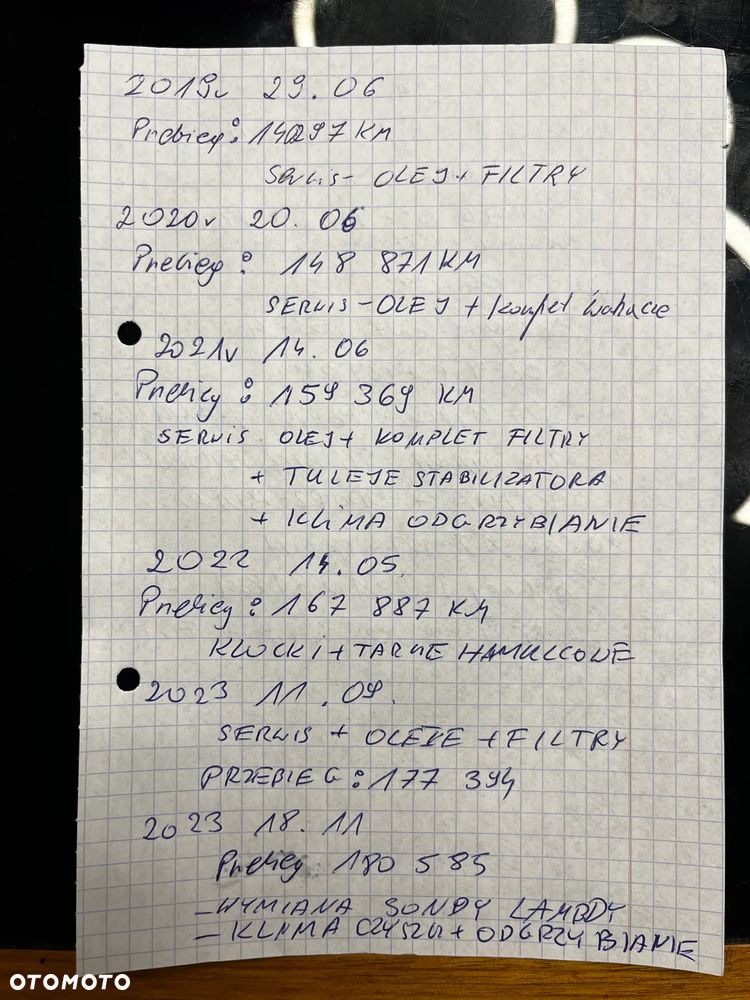 2019r 29.06
Przebieg: 140297 KM
Serwis- OLEJ+ FILTRY
2020r 20.06
Przebieg: 148 871 KM
SERWIS-OLEJ + komplet wahacze
2021r 14.06
Przebieg: 159 369 KM
SERWIS OLEJ+ KOMPLET FILTRY
+ TULEJE STABILIZATORA
+ KLIMA ODGRZYBIANIE
2022 14.05.
Przebieg: 167 887 KM
KLOCKI+TARCZE HAMULCOWE
2023 11.09.
SERWIS + OLEJE + FILTRY
PRZEBIEG: 177 394
2023 18.11
Przebieg 180 585
-WYMIANA SONDY LAMBDY
- KLIMA + ODGRZYBIANIE
OTOMOTO